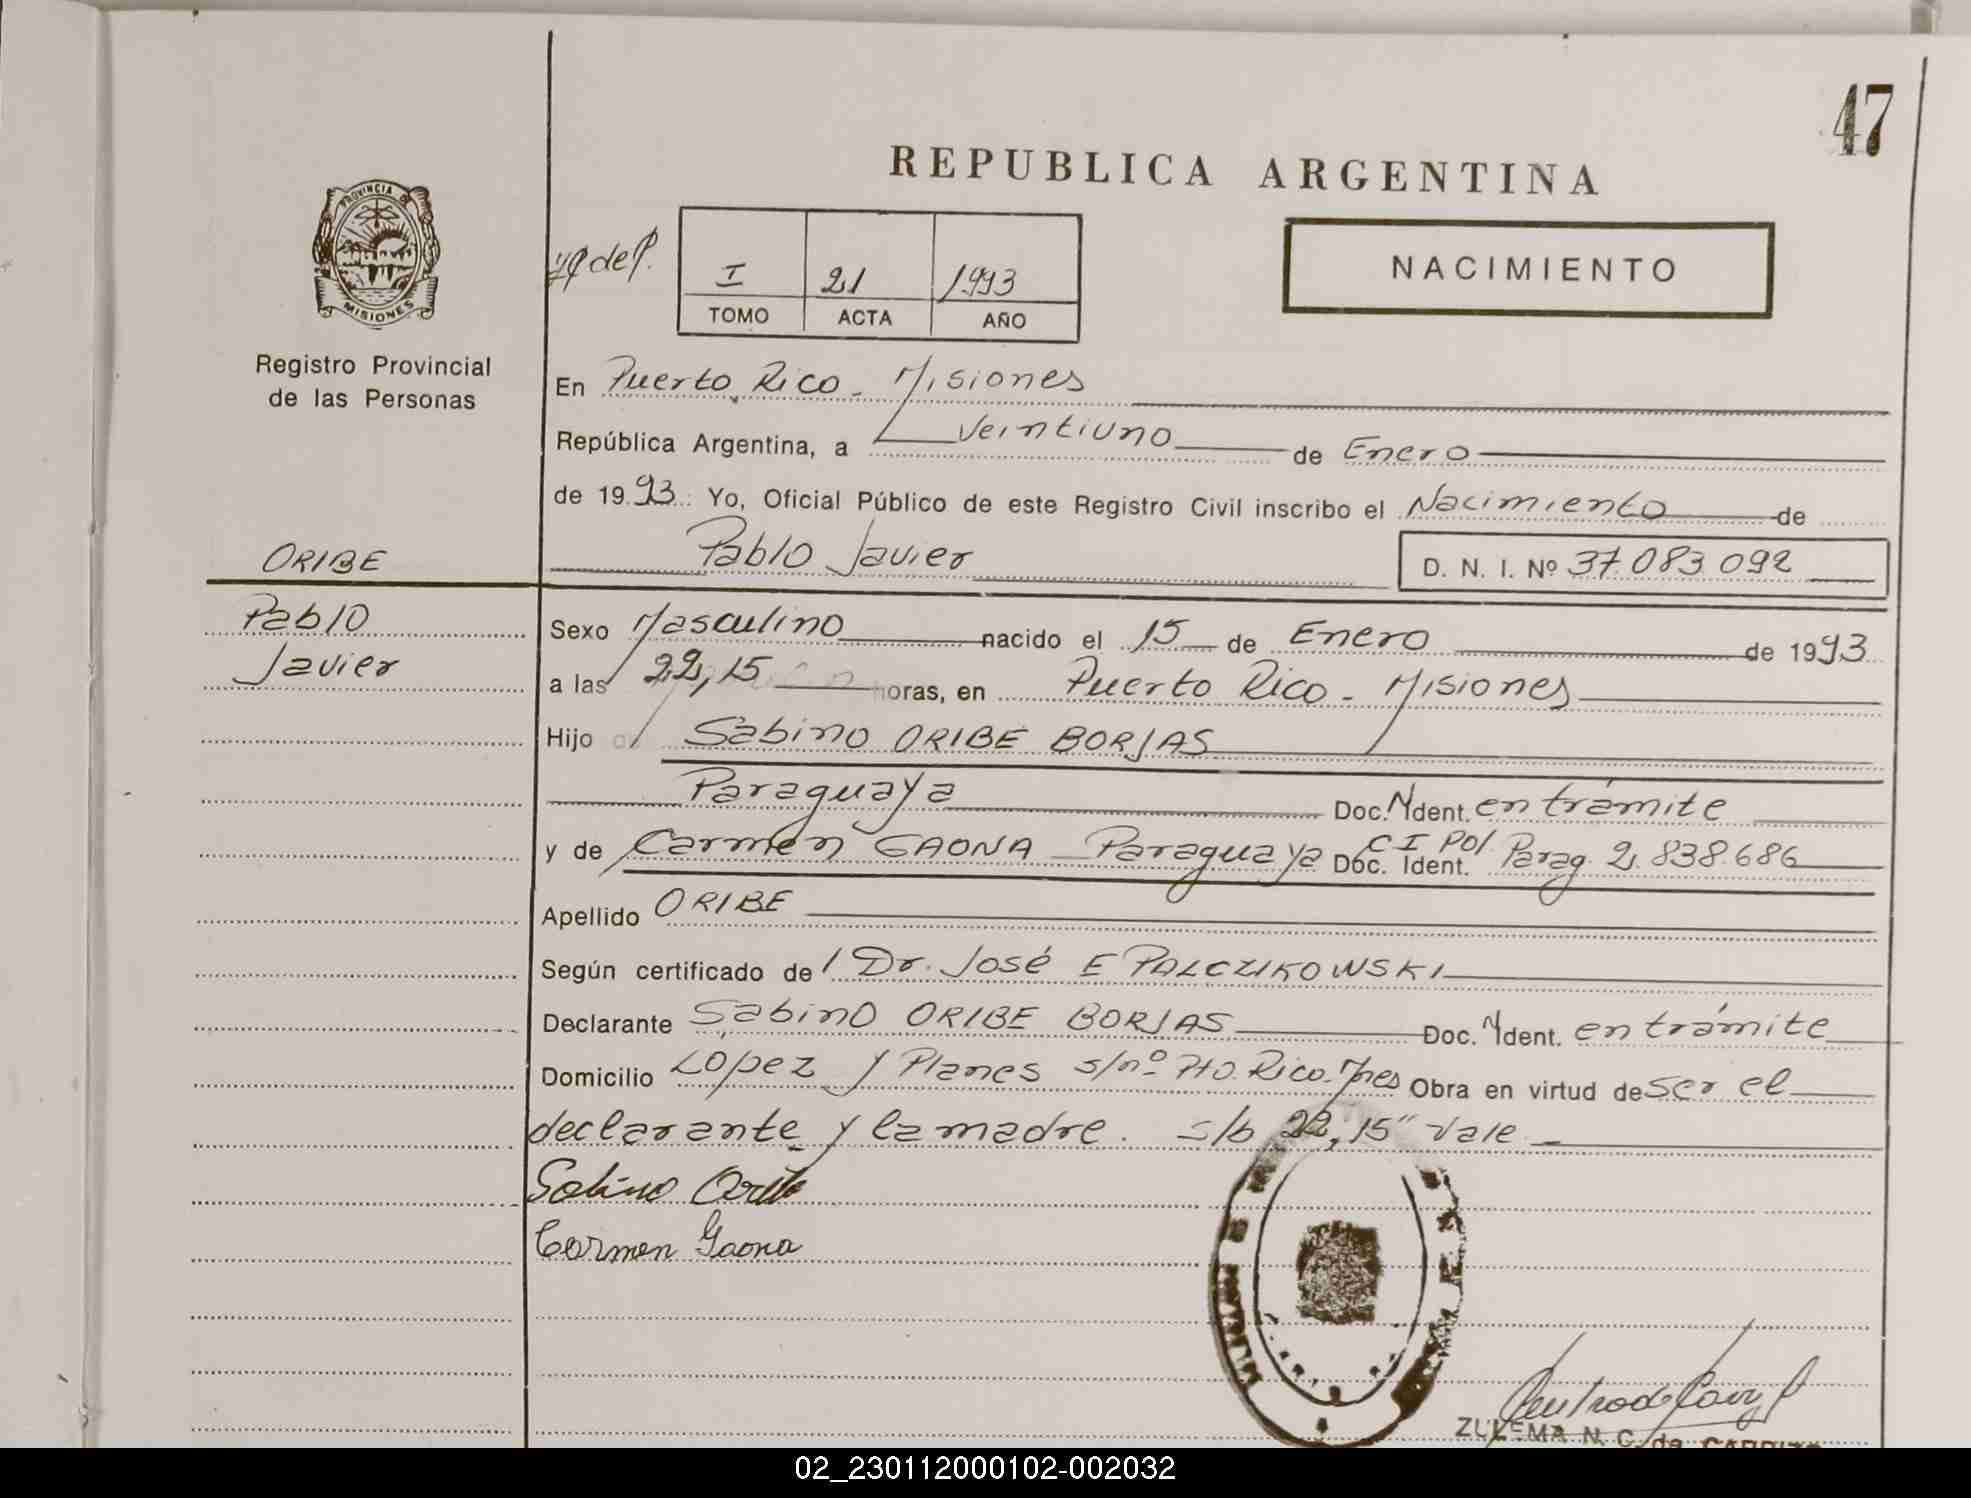 47
REPUBLICA ARGENTINA
PROVINCIA DE
MISIONES
Registro Provincial
de las Personas
I 21 1993
TOMO ACTA AÑO
NACIMIENTO
En Puerto Rico - Misiones
República Argentina, a Veintiuno de Enero
de 1993 : Yo, Oficial Público de este Registro Civil inscribo el Nacimiento de
ORIBE
Pablo Javier D. N. I. Nº 37.083.092
Pablo
Javier
Sexo Masculino nacido el 15 de Enero de 1993
a las 22,15 horas, en Puerto Rico - Misiones
Hijo de Sabino ORIBE BORJAS
Paraguaya Doc. Ident. en trámite
y de Carmen GAONA Paraguaya Doc. Ident. C I Pol Parag. 2.838.686
Apellido ORIBE
Según certificado de Dr. José E PALCZIKOWSKI
Declarante Sabino ORIBE BORJAS Doc. Ident. en trámite
Domicilio López y Planes s/nº Pto. Rico. Mnes Obra en virtud de ser el
declarante y la madre. s/b 22,15" Vale
Sabino Oribe
Carmen Gaona
ZULEMA N. C. de
02_230112000102-002032